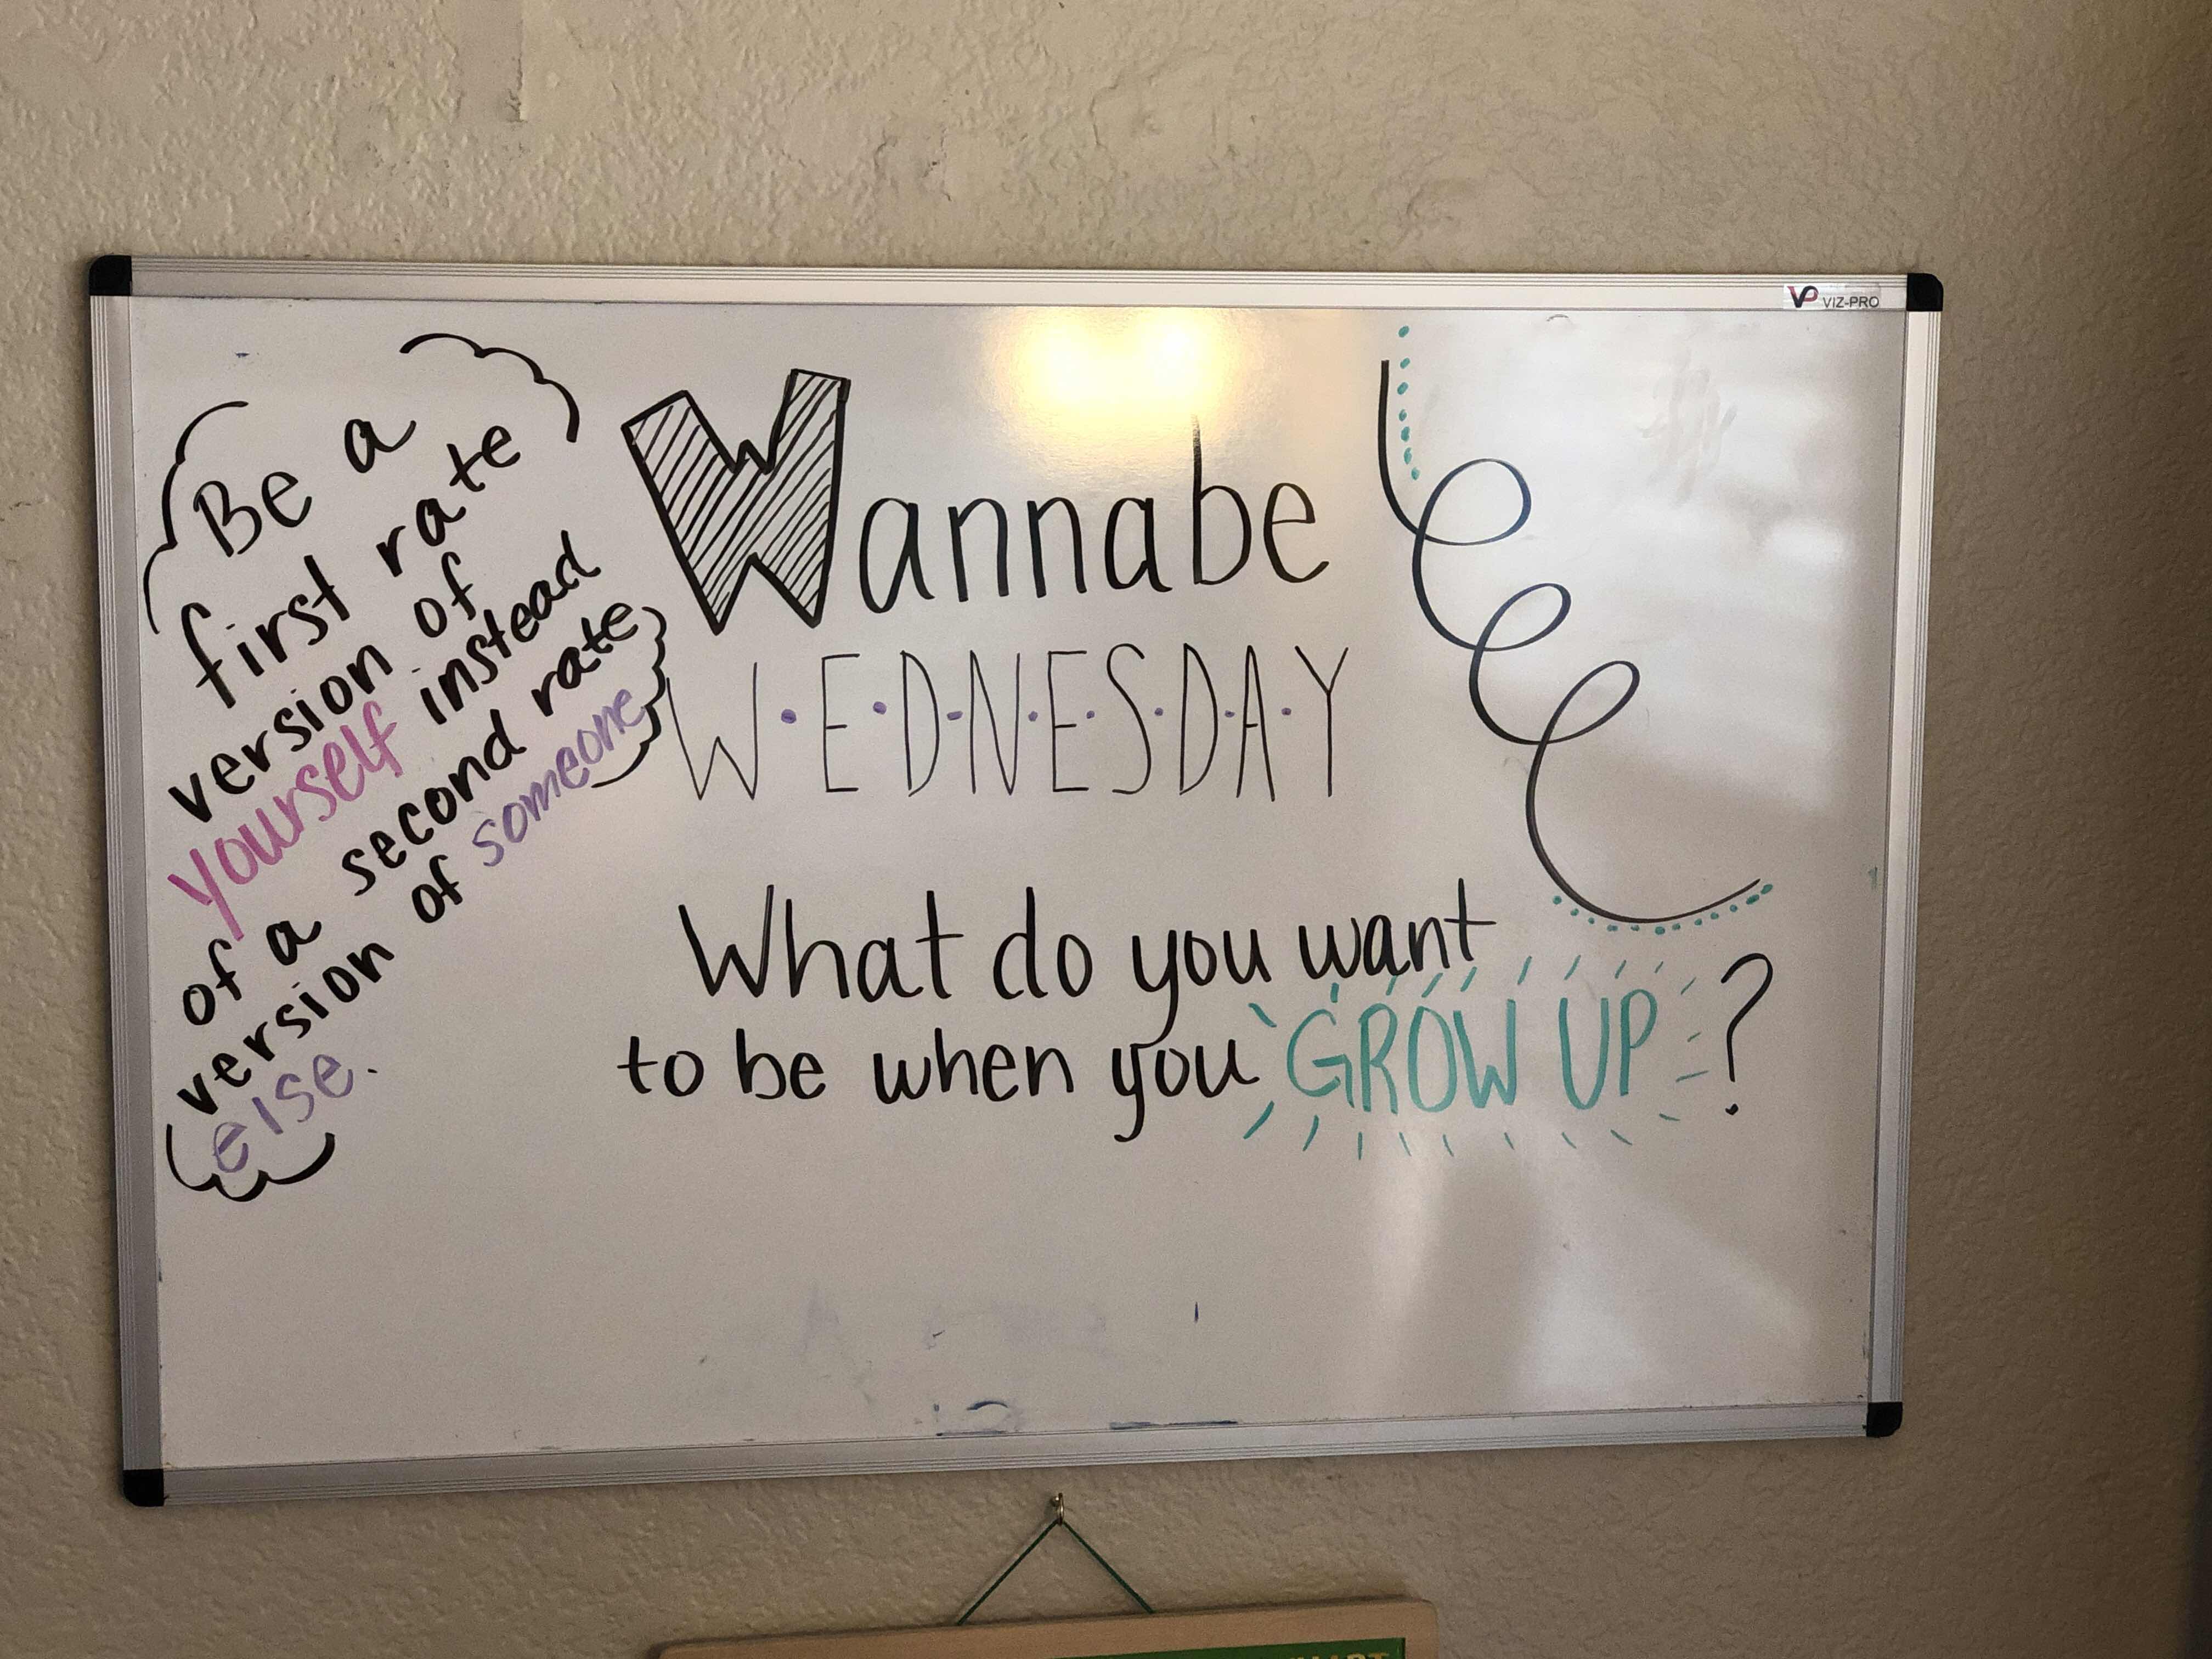 VP VIZ-PRO
Be a
first rate
version of
yourself instead
of a second rate
version of someone
else.
Wannabe
W·E·D·N·E·S·D·A·Y
What do you want
to be when you GROW UP?